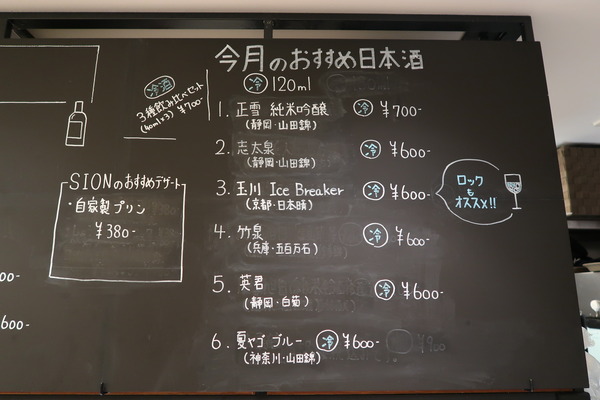 今月のおすすめ日本酒
冷 120ml
冷酒
3種飲み比べセット
(40ml×3) ¥700-
1. 正雪 純米吟醸 冷 ¥700-
(静岡・山田錦)
2. 志太泉 冷 ¥600-
(静岡・山田錦)
3. 玉川 Ice Breaker 冷 ¥600-
(京都・日本晴)
ロック
も
オススメ!!
4. 竹泉 冷 ¥600-
(兵庫・五百万石)
5. 英君 冷 ¥600-
(静岡・白菊)
6. 夏ヤゴ ブルー 冷 ¥600-
(神奈川・山田錦)
SIONのおすすめデザート
・自家製プリン
¥380-
00-
600-